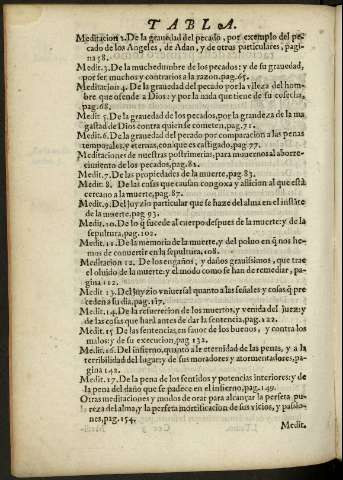 TABLA.
Meditacion 2. De la grauedad del pecado, por exemplo del pe-
cado de los Angeles, de Adan, y de otros particulares, pagi-
na 58.
Medit. 3. De la muchedumbre de los pecados: y de su grauedad,
por ser muchos y contrarios a la razon. pag. 65.
Meditacion 4. De la grauedad del pecado por la vileza del hom-
bre que ofende a Dios: y por la nada que tiene de su cosecha,
pag. 68.
Medit. 5. De la grauedad de los pecados, por la grandeza de la ma
gestad de Dios contra quien se cometen, pag. 71.
Medit. 6. De la grauedad del pecado por comparacion a las penas
temporales, y eternas, con que es castigado, pag. 77.
Meditaciones de nuestras postrimerias, para mouernos al aborre-
cimiento de los pecados, pag. 82.
Medit. 7. De las propiedades de la muerte, pag 83.
Medit. 8. De las cosas que causan congoxa y afliccion al que está
cercano a la muerte, pag. 87.
Medit. 9. Del juyzio particular que se haze del alma en el instāte
de la muerte, pag 93.
Medit. 10. De lo q̄ sucede al cuerpo despues de la muerte: y de la
sepultura, pag. 102.
Medit. 11. De la memoria de la muerte, y del poluo en q̄ nos he-
mos de conuertir en la sepultura, 108.
Meditacion 12. De los engaños, y daños grauissimos, que trae
el oluido de la muerte: y el modo como se han de remediar, pa-
gina 112.
Medit. 13. Del juyzio vniuersal quanto a las señales y cosas q̄ pre
ceden a su dia, pag. 117.
Medit. 14. De la resurreccion de los muertos, y venida del Iuez: y
de las cosas que hará antes de dar la sentencia, pag. 122.
Medit. 15 De las sentencias, en fauor de los buenos, y contra los
malos: y de su execucion, pag 132.
Medit. 16. Del infierno, quanto a le eternidad de las penas, y a la
terribilidad del lugar: y de sus moradores y atormentadores, pa-
gina 142.
Medit. 17. De la pena de los sentidos y potencias interiores: y de
la pena del daño que se padece en el infierno, pag. 149.
Otras meditaciones y modos de orar para alcançar la perfeta pu-
reza del alma, y la perfeta mortificacion de sus vicios, y passio-
nes, pag. 154.
Medit.